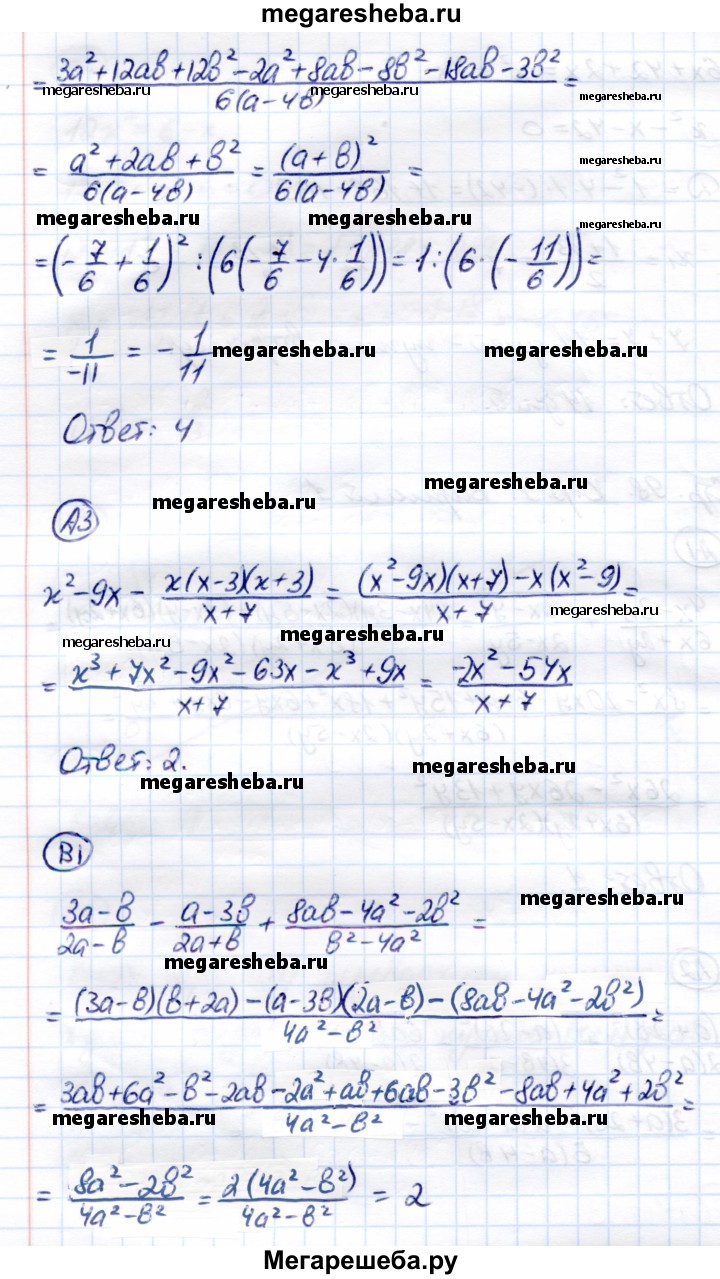 megaresheba.ru
= (3a²+12ab+12b²-2a²+8ab-8b²-18ab-3b²)/(6(a-4b)) =
megaresheba.ru megaresheba.ru megaresheba.ru
= (a²+2ab+b²)/(6(a-4b)) = (a+b)²/(6(a-4b)) =
megaresheba.ru
megaresheba.ru megaresheba.ru megaresheba.ru
= (-7/6 + 1/6)² : (6(-7/6 - 4·1/6)) = 1 : (6·(-11/6)) =
= 1/-11 = -1/11
megaresheba.ru megaresheba.ru
Ответ: 4
megaresheba.ru
megaresheba.ru
А3
x²-9x - x(x-3)(x+3)/(x+7) = ((x²-9x)(x+7)-x(x²-9))/(x+7) =
megaresheba.ru
megaresheba.ru megaresheba.ru
= (x³+7x²-9x²-63x-x³+9x)/(x+7) = (-2x²-54x)/(x+7)
Ответ: 2.
megaresheba.ru megaresheba.ru
В1
(3a-b)/(2a-b) - (a-3b)/(2a+b) + (8ab-4a²-2b²)/(b²-4a²) =
megaresheba.ru
megaresheba.ru
= ((3a-b)(b+2a)-(a-3b)(2a-b)-(8ab-4a²-2b²))/(4a²-b²) =
= (3ab+6a²-b²-2ab-2a²+ab+6ab-3b²-8ab+4a²+2b²)/(4a²-b²) =
megaresheba.ru megaresheba.ru
= (8a²-2b²)/(4a²-b²) = 2(4a²-b²)/(4a²-b²) = 2
Мегарешеба.ру